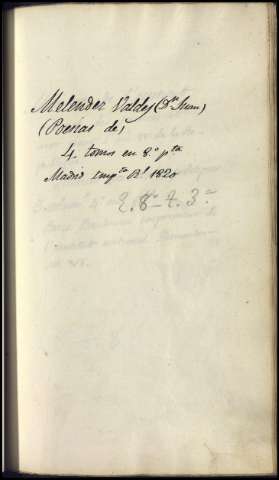 Melendez Valdes (Dn. Juan)
(Poesias de)
4. tomos en 8.º pta
Madrid impta Rl 1820
2. 8ª - 7. 3ª